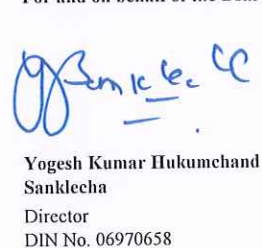 Yogesh Kumar Hukumchand
Sanklecha
Director
DIN No. 06970658